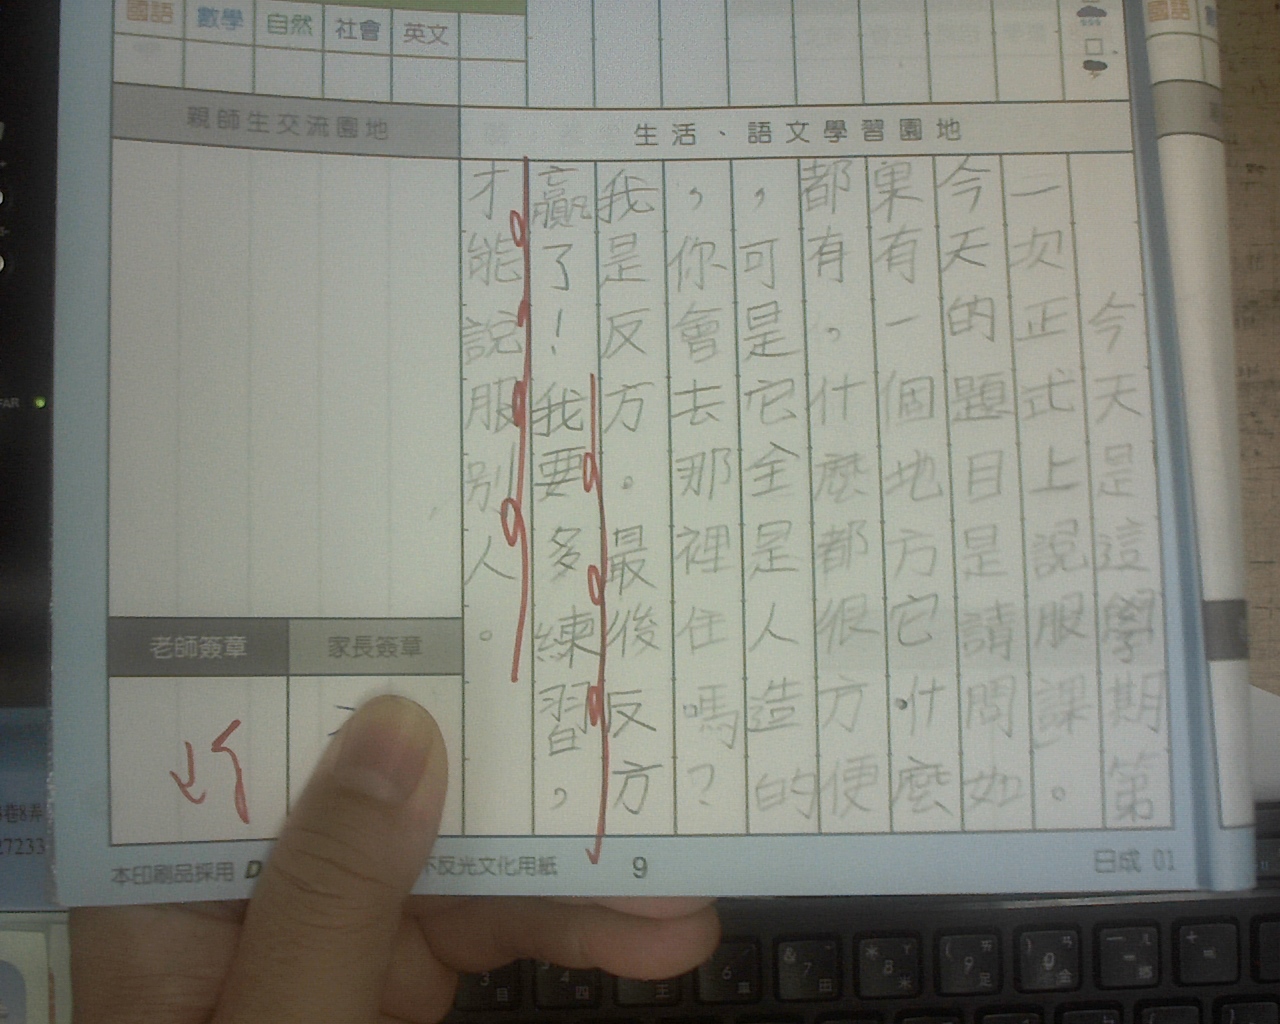 國語 數學 自然 社會 英文
國語
親師生交流園地
生活、語文學習園地
今天是這學期第
一次正式上說服課。
今天的題目是請問如
果有一個地方它什麼
都有。什麼都很方便
，可是它全是人造的
，你會去那裡住嗎？
我是反方。最後反方
贏了！我要多練習，
才能說服別人。
老師簽章
家長簽章
本印刷品採用 D
不反光文化用紙
9
日成 01
27233
FAR